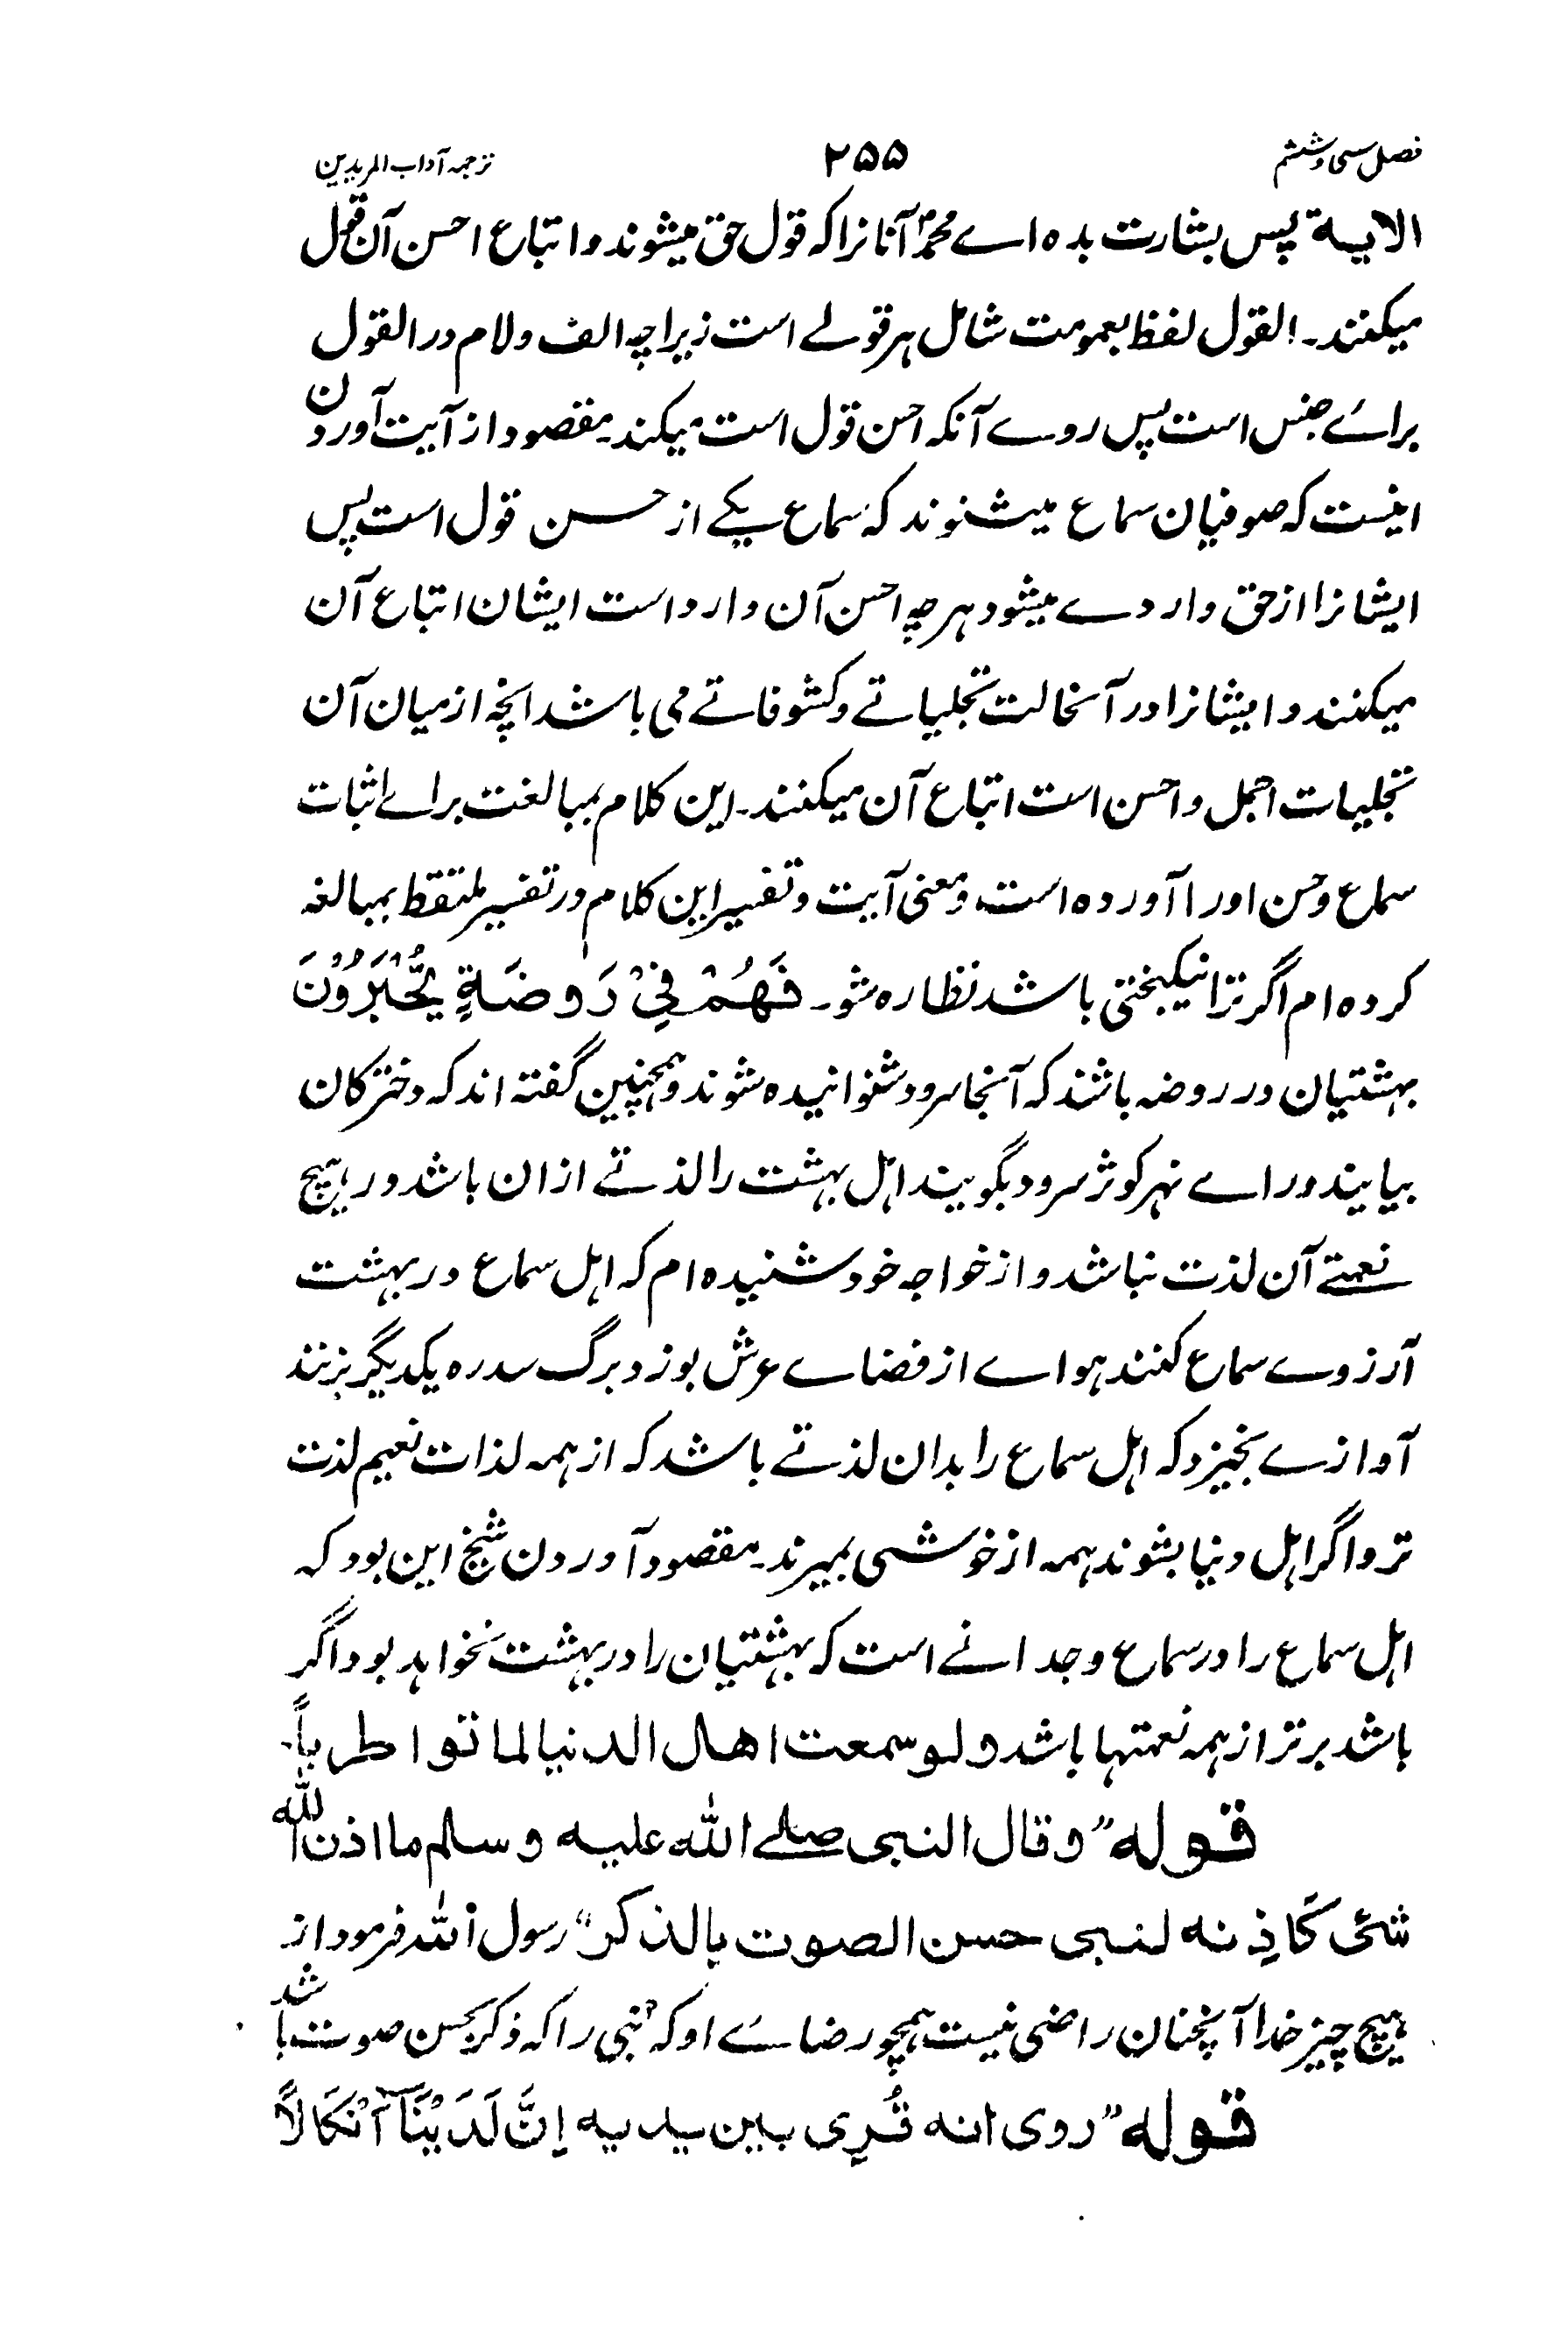 فصل سی و ششم ۲۵۵ ترجمہ آداب المریدین
الایة پس بشارت بده اے محمدؐ آنانرا کہ قول حق میشوند و اتباع احسن آن قول
میکنند۔ القول لفظ بعمومت شامل ہر قولے است زیراچہ الف و لام در القول
براۓ جنس است پس روے آنکہ احسن قول است میکند۔ مقصود از آیت آوردن
اینست کہ صوفیان سماع میشنوند کہ سماع یکے از حسن قول است پس
ایشانرا از حق واردے میشود ہرچہ احسن آن وارد است ایشان اتباع آن
میکنند و ایشانرا در آنحالت تجلیاتے و کشوفاتے می باشد انچہ از میان آن
تجلیات اجمل و احسن است اتباع آن میکنند۔ این کلام بمبالغت براے اثبات
سماع و حسن او را آورده است، و معنی آیت و تفسیر این کلام در تفسیر ملتقط بمبالغہ
کرده ام اگر ترا نیکبختی باشد نظاره شو۔ فَهُمْ فِيْ رَوضَةٍ يُّحْبَرُوْنَ
بہشتیان در روضہ باشند کہ آنجا سرود شنوانیده شوند و ہمچنین گفتہ اند کہ دخترکان
بیایند وراے نہر کوثر سرود بگویند اہل بہشت را لذتے ازان باشد ور ہیچ
نعمتے آن لذت نباشد و از خواجہ خود شنیده ام کہ اہل سماع در بہشت
آرزوے سماع کنند ہواے از فضاے عرش بوزد و برگ سدره یکدیگر بزنند
آوازے بخیزد کہ اہل سماع را بدان لذتے باشد کہ از ہمہ لذات نعیم لذت
تر و اگر اہل دنیا بشوند ہمہ از خوشی بمیرند۔ مقصود آوردن شیخ این بود کہ
اہل سماع را در سماع وجدانے است کہ بہشتیان را در بہشت نخواہد بود اگر
باشد برتر از ہمہ نعمتہا باشد و لو سمعت اهل الدنیا لماتوا طرباً۔
قوله ”و قال النبی صلے اللہ علیه و سلم ما اذن اللہ
شئ کَاَذِنه لنبی حسن الصوت بالذکر“ رسول اللہ فرمود از
ہیچ چیز خدا آنچنان راضی نیست ہمچو رضاۓ او کہ نبی را کہ ذکر بحسن صوت باشد
قوله ”روی انه قُرِی بین یدیه اِنَّ لَدَيْنَآ اَنْكَالًا